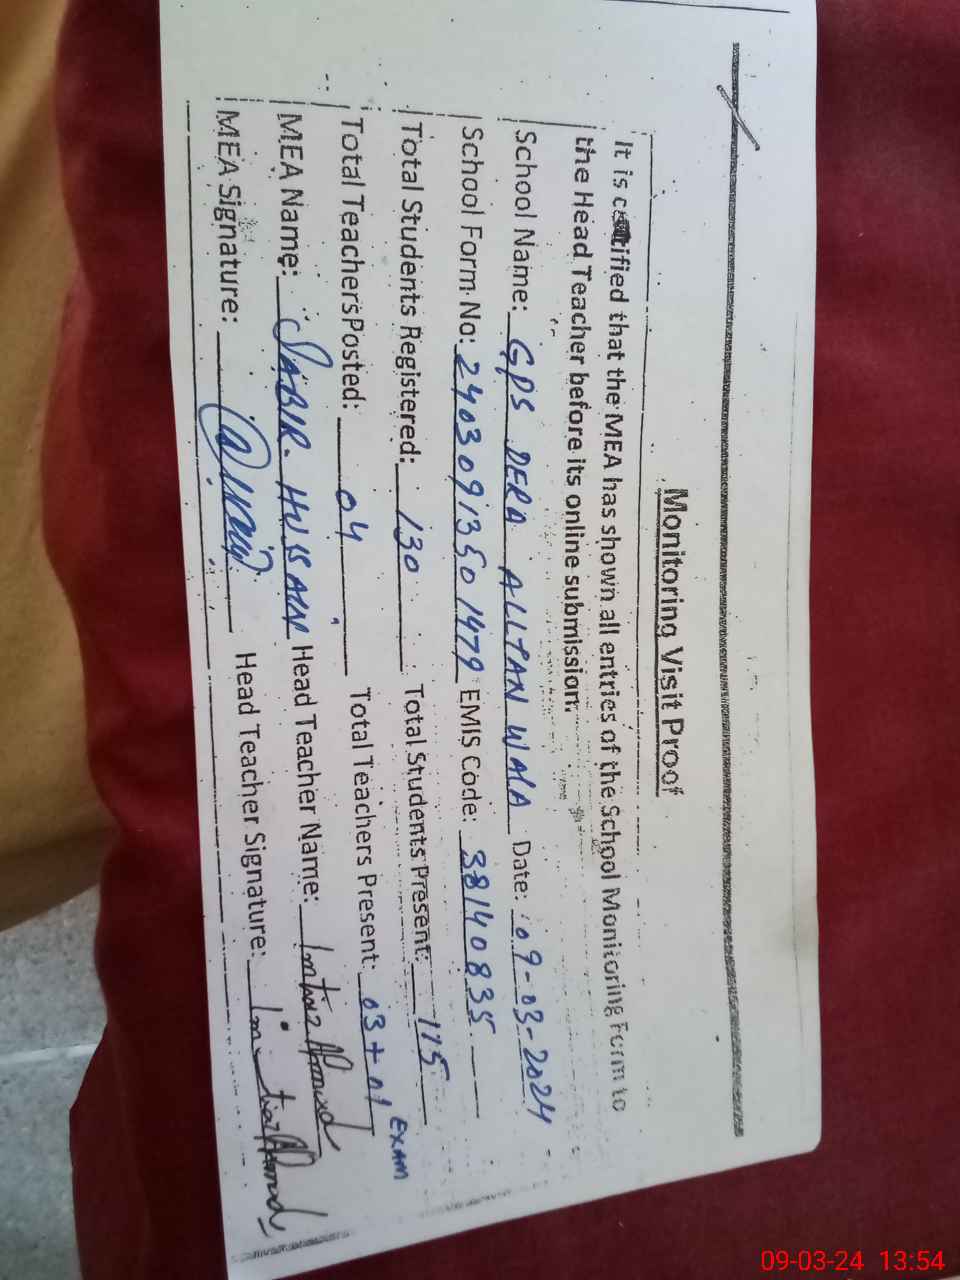 Monitoring Visit Proof
It is certified that the MEA has shown all entries of the School Monitoring Form to
the Head Teacher before its online submission.
School Name: GPS DERA ALLTAN WALA Date: 09-03-2024
School Form No: 24030913501479 EMIS Code: 38140835
Total Students Registered: 130 Total Students Present: 115
Total Teachers Posted: 04 Total Teachers Present: 03+01 EXAM
MEA Name: SABIR HUSSAIN Head Teacher Name: Imtiaz Ahmad
MEA Signature: Head Teacher Signature: Imtiaz Ahmad
09-03-24 13:54